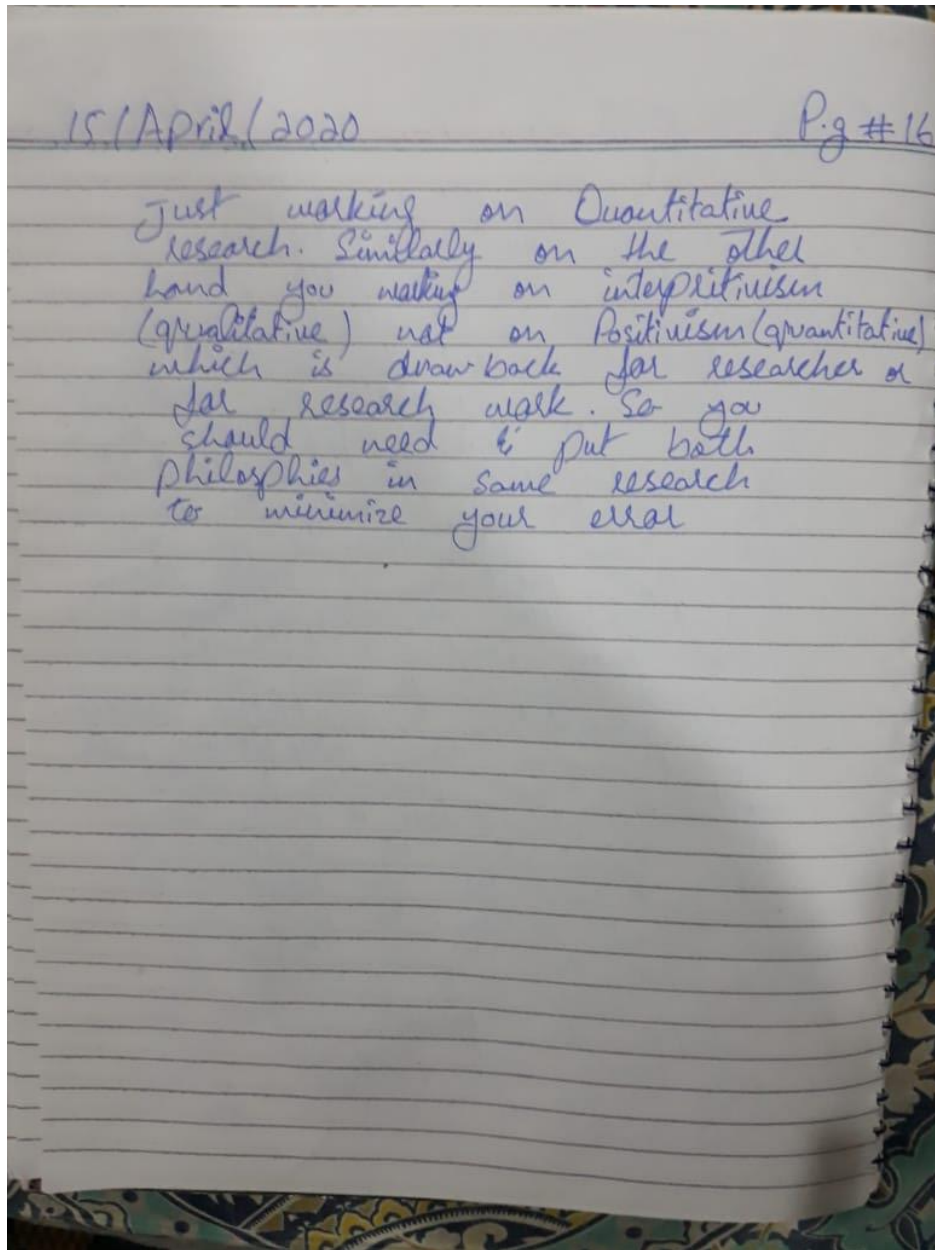 15/April/2020 P.g # 16
Just working on Quantitative
research. Simillarly on the other
hand you working on interpritivism
(qualitative) not on Positivism (quantitative)
which is drawback for researcher or
for research work. So you
should need & put both
Philosphies in same research
to minimize your error